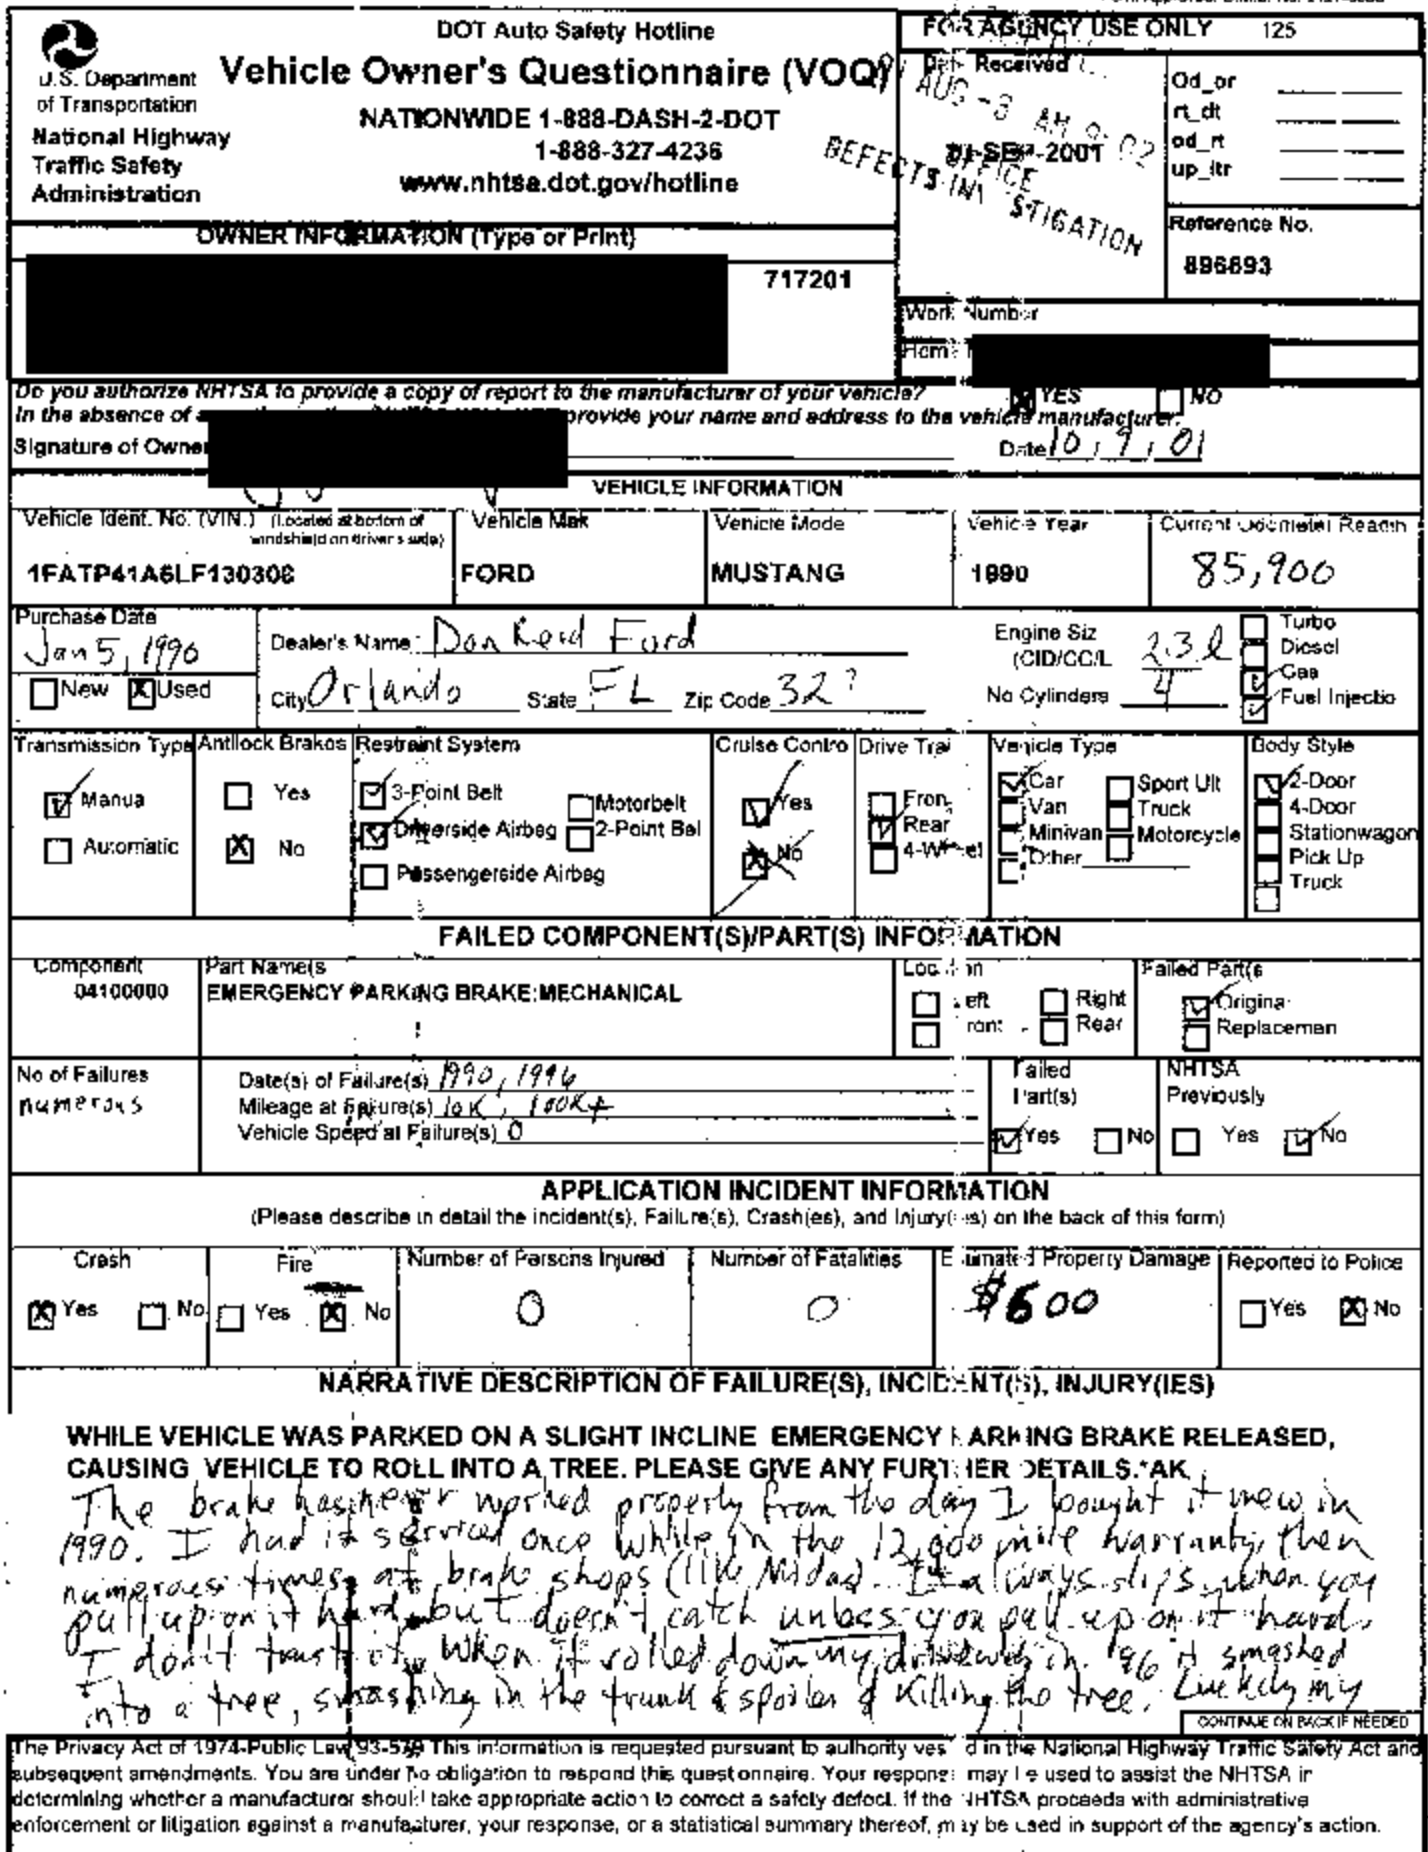 DOT Auto Safety Hotline
Vehicle Owner's Questionnaire (VOQ)
NATIONWIDE 1-888-DASH-2-DOT
1-888-327-4236
www.nhtsa.dot.gov/hotline
U.S. Department
of Transportation
National Highway
Traffic Safety
Administration
FOR AGENCY USE ONLY 125
Date Received
AUG -8 AM 9:02
SEP-2001
OFFICE
DEFECTS INVESTIGATION
Od_or
rt_dt
od_rt
up_ltr
Reference No.
896893
OWNER INFORMATION (Type or Print)
717201
Work Number
Home
Do you authorize NHTSA to provide a copy of report to the manufacturer of your vehicle?
YES NO
In the absence of provide your name and address to the vehicle manufacturer.
Signature of Owner
Date 10 / 9 / 01
VEHICLE INFORMATION
Vehicle Ident. No. (VIN.) (Located at bottom of
windshield on driver's side)
Vehicle Mak
Vehicle Mode
Vehicle Year
Current Odometer Readin
1FATP41A6LF130308
FORD
MUSTANG
1990
85,900
Purchase Date
Jan 5, 1990
New Used
Dealer's Name Don Reid Ford
City Orlando State FL Zip Code 32?
Engine Siz
(CID/CC/L 2.3 l
No Cylinders 4
Turbo
Diesel
Gas
Fuel Injectio
Transmission Type
Manua
Automatic
Antilock Brakes
Yes
No
Restraint System
3-Point Belt
Driverside Airbag
Passengerside Airbag
Motorbelt
2-Point Bel
Cruise Contro
Yes
No
Drive Trai
Fron
Rear
4-Wheel
Vehicle Type
Car
Van
Minivan
Other
Sport Ult
Truck
Motorcycle
Body Style
2-Door
4-Door
Stationwagon
Pick Up
Truck
FAILED COMPONENT(S)/PART(S) INFORMATION
Component
04100000
Part Name(s
EMERGENCY PARKING BRAKE:MECHANICAL
Location
Left Right
Front Rear
Failed Part(s
Origina
Replacemen
No of Failures
numerous
Date(s) of Failure(s) 1990, 1996
Mileage at Failure(s) 10K, 100K+
Vehicle Speed at Failure(s) 0
Failed
Part(s)
Yes No
NHTSA
Previously
Yes No
APPLICATION INCIDENT INFORMATION
(Please describe in detail the incident(s), Failure(s), Crash(es), and Injury(ies) on the back of this form)
Crash
Yes No
Fire
Yes No
Number of Persons Injured
0
Number of Fatalities
0
Estimated Property Damage
$600
Reported to Police
Yes No
NARRATIVE DESCRIPTION OF FAILURE(S), INCIDENT(S), INJURY(IES)
WHILE VEHICLE WAS PARKED ON A SLIGHT INCLINE EMERGENCY PARKING BRAKE RELEASED,
CAUSING VEHICLE TO ROLL INTO A TREE. PLEASE GIVE ANY FURTHER DETAILS.*AK
The brake has never worked properly from the day I bought it new in
1990. I had it serviced once while in the 12,000 mile warranty, then
numerous times at brake shops (like Midas). It always slips when you
pull up on it hard but doesn't catch unless you pull up on it hard.
I don't trust it. When it rolled down my driveway in '96 it smashed
into a tree, smashing in the trunk & spoiler & killing the tree. Luckely my
CONTINUE ON BACK IF NEEDED
The Privacy Act of 1974-Public Law 93-579 This information is requested pursuant to authority vested in the National Highway Traffic Safety Act and
subsequent amendments. You are under no obligation to respond this questionnaire. Your response may be used to assist the NHTSA in
determining whether a manufacturer should take appropriate action to correct a safety defect. If the NHTSA proceeds with administrative
enforcement or litigation against a manufacturer, your response, or a statistical summary thereof, may be used in support of the agency's action.